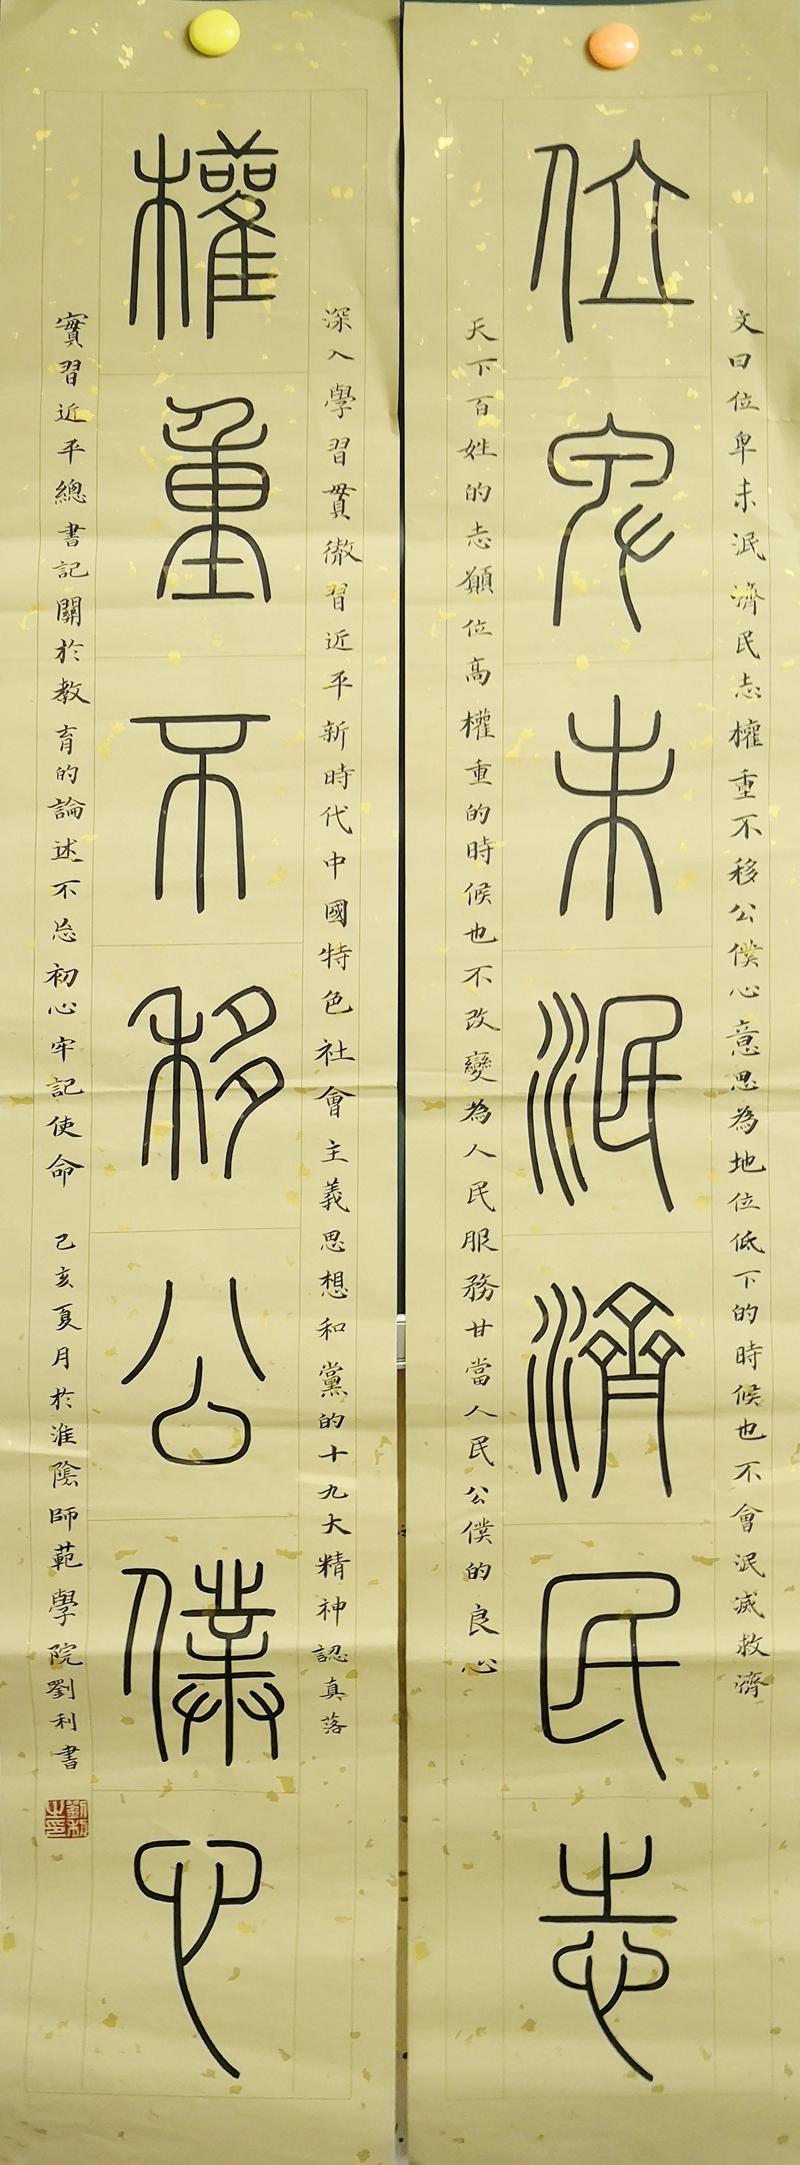 文曰位卑未泯濟民志權重不移公僕心意思為地位低下的時候也不會泯滅救濟
位卑未泯濟民志
天下百姓的志願位高權重的時候也不改變為人民服務甘當人民公僕的良心
深入學習貫徹習近平新時代中國特色社會主義思想和黨的十九大精神認真落
權重不移公僕心
實習近平總書記關於教育的論述不忘初心牢記使命 己亥夏月於淮陰師範學院劉利書
劉利之印